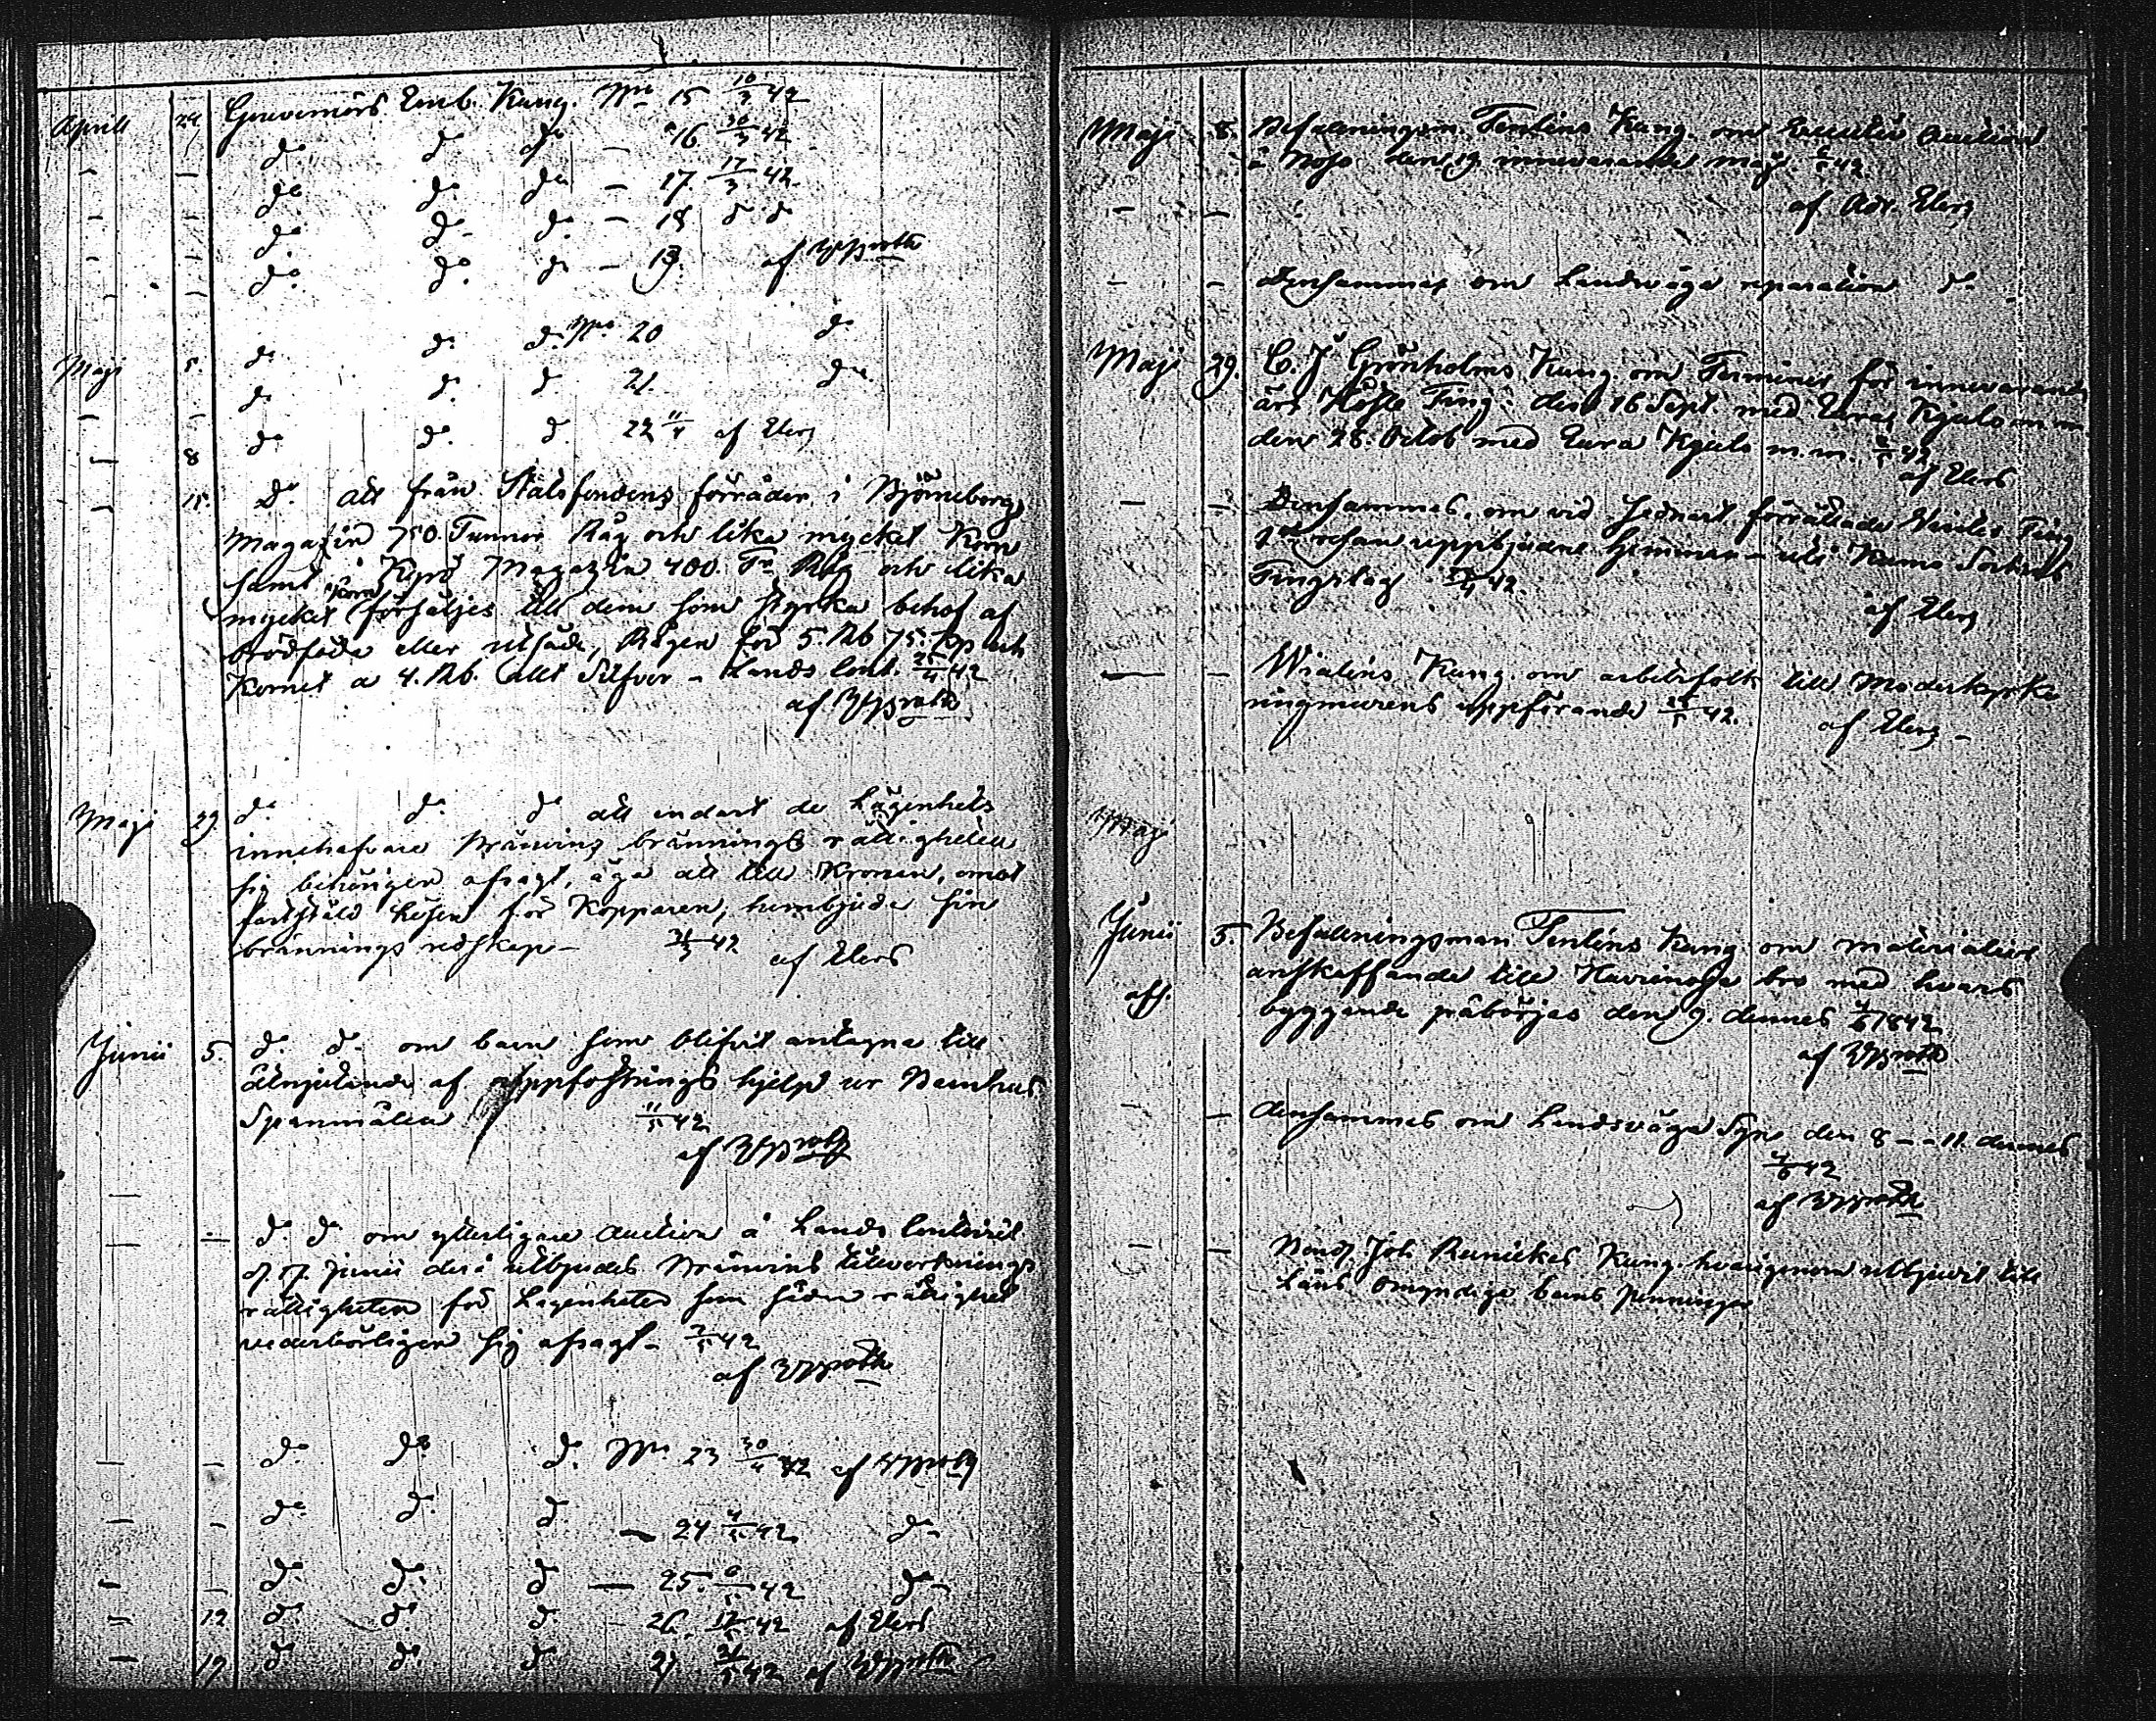 Aprill 24 Gouvernörs Emb. Kung. No 15 10/3 42
— — do do do — 16 10/3 42
— — do do do — 17. 17/3 42.
— — do do do — 18 d d
— — do do do — 19. af
Maji 5. do do do No 20 do
— — do do d 21. do
— 8 do do d 22 11/4 af Elers
— 15. Do att från Statsfondens förråder i Björneborgs
Magazin 750. Tunnor Råg och lika mycket Korn
samt i Magazin 400. Tr Råg och lika
mycket Korn försäljes till dem som styrka behof af
födföda eller utsäde, Rågen för 5. Rb 75. Kop och
Kornet a 4. Rb. allt Silfver – Lands Cont. 25/4 42
af
Maji 29. do do do att endast de Lägenhets
innehafvare Bränvins bränningsrättigheten
sig behörigen afsagt, äga att till Kronan, emot
fastställd lösen för Kopparen, hembjuda sin
brännings redskap – 21/5 42 af Elers
Junii 5. do do om barn som blifvit antagna till
åtnjutande af uppfostrings hjelp ur Barnhus
Spanmålen 11/5 42
af
— — do do om ytterligare Auction å Lands Contoiret
d. 17. Junii der utbjudes Bränvins tillverknings
rättigheten för Lägenheter som sådan rättighet
vederbörligen sig afsagt – 7/5 42
af
— — do do do No 23 30/4 42 af
— — do do d — 24 4/5 42 do
— — do do d — 25. 6/5 42 do
— 12 do do d – 26. 12/5 42 af Elers
— 19 do do d 27 21/5 42 af
Maji 8. Befallningsm. Tenlins Kung. om Auction
å den 19. innevarande maji. 42.
— — af Adr. Elers
— — Densammes om Landsväga reparation do
Maji 29. C. J Grönholms Kung. om Terminer för innevarande
års Höste Ting: den 16 Sept. med Eura, Kjulo m m
den 28. Octob med Eura Kjulo m. m. 42
af Elers
— — Densammes, om vid sednast förrättade Vinter Ting
1sta resan uppbjudne hemman – uti Kumo Sockns
Tingslag 42.
af Elers
— — Kung. om arbetsfolk till Moderkyrko
ringmurens uppförande 25/5 42.
af Elers –
Maji
Junii 5. Befallningsman Tenlins Kung om materialiers
anskaffande till bro med hvars
byggande påbörjas den 9. dennes 1842
af
— — densammes om Landsväga Syn den 8 – – 11. dennes
42
af
— — Joh Kung. hvarigenom utbjudes till
Låns Omyndige barns penningar